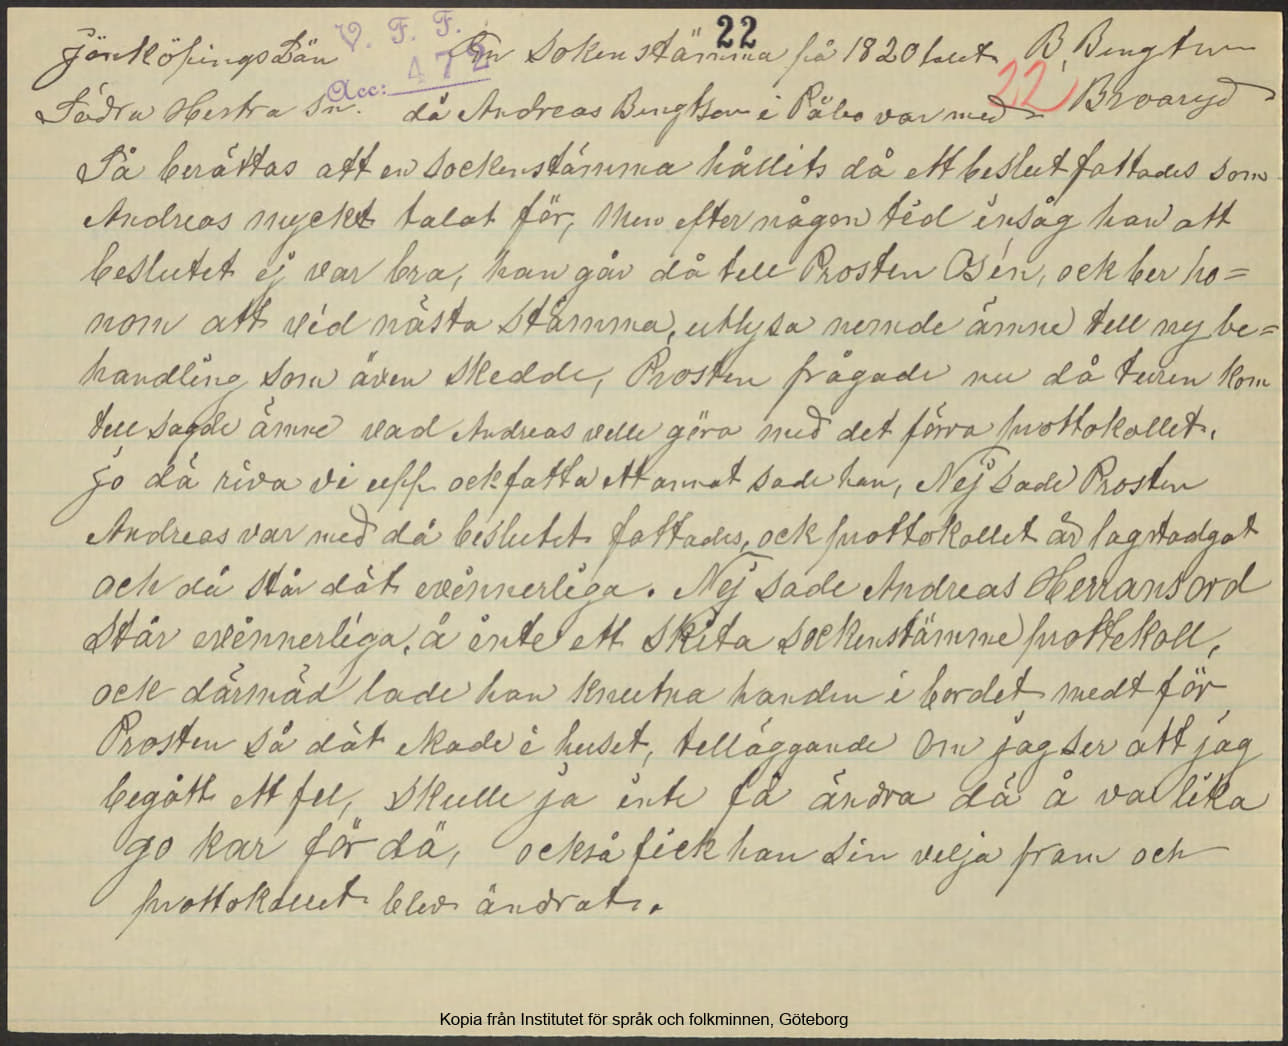 22
V. F. F.
Acc: 472
22
Jönköpings Län En Sokenstämma på 1820 talet B. Bengtson
Södra Hestra Sn. då Andreas Bengtson i Påbo var med Broaryd
Så berättas att en sockenstämma hållits då ett beslut fattades som
Andreas mycket talat för, Men efter någon tid insåg han att
beslutet ej var bra, han går då till Prosten Osén, ock ber ho=
nom att vid nästa stämma, utlysa nemde ämne till ny be=
handling som även skedde, Prosten frågade nu då turen kom
till sagde ämne vad Andreas ville göra med det förra prottokollet,
jo dä riva vi upp ock fatta ett annat sade han, Nej sade Prosten
Andreas var med då beslutet fattades, ock prottokollet är lagstadgat
och då står dät evinnerliga. Nej sade Andreas Herrans ord
står evinnerliga, å inte ett skita sockenstämme prottekoll,
ock därmäd lade han knutna handen i bordet medt för
Prosten så dät skade i huset, tilläggande Om jag ser att jag
begått ett fel, skulle ja inte få ändra dä å va lika
go kar för dä, också fick han sin vilja fram och
prottokollet blev ändrat.
Kopia från Institutet för språk och folkminnen, Göteborg